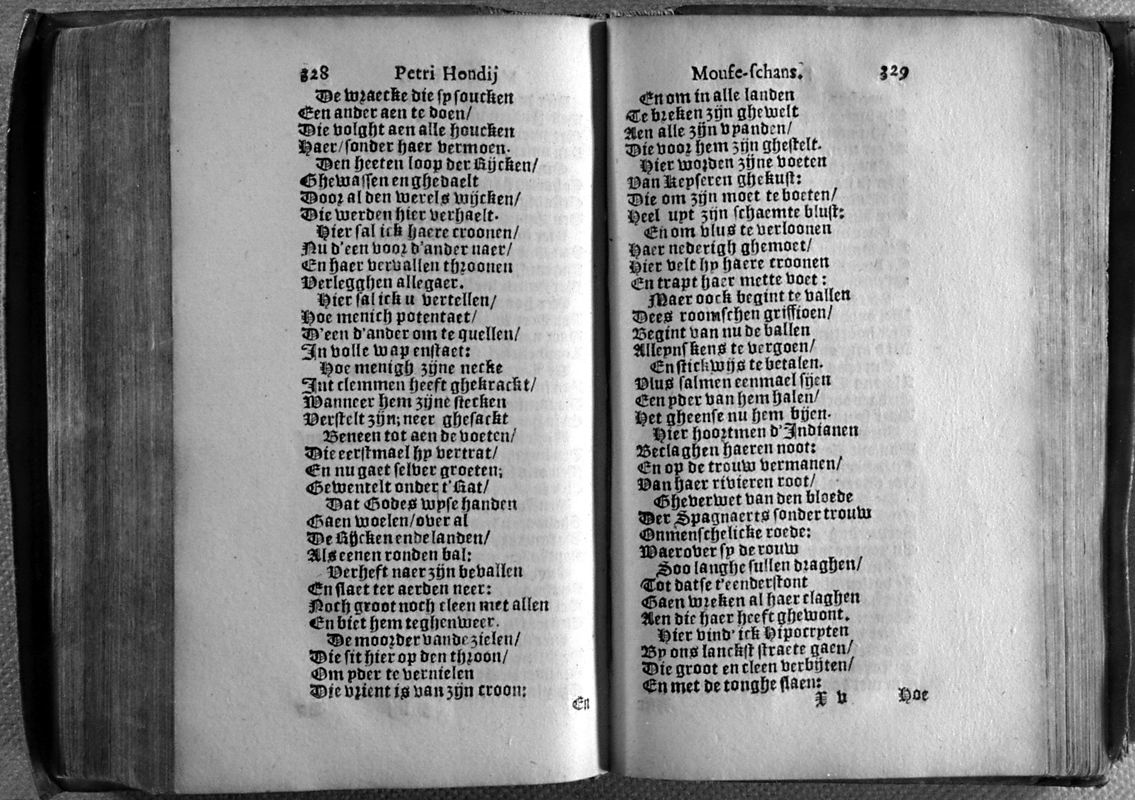 328 Petri Hondij
De wraecke die sy soucken
Een ander aen te doen/
Die volght aen alle houcken
Haer/sonder haer vermoen.
Den heeten loop der Rijcken/
Ghewassen en ghedaelt
Door al den werels wijcken/
Die werden hier verhaelt.
Hier sal ick haere croonen/
Nu d'een voor d'ander naer/
En haer vervallen throonen
Verlegghen allegaer.
Hier sal ick u vertellen/
Hoe menich potentaet/
D'een d'ander om te quellen/
In volle wapenstaet:
Hoe menigh zijne necke
Int clemmen heeft ghekrackt/
Wanneer hem zijne stecken
Verstelt zijn; neer ghesackt
Beneen tot aen de voeten/
Die eerstmael hy vertrat/
En nu gaet selver groeten;
Gewentelt onder t'Rat/
Dat Godes wyse handen
Gaen woelen/over al
De Rijcken ende landen/
Als eenen ronden bal:
Verheft naer zijn bevallen
En slaet ter aerden neer:
Noch groot noch cleen met allen
En biet hem teghenweer.
De moorder vande zielen/
Die sit hier op den throon/
Om yder te vernielen
Die vrient is van zijn croon:
En
Mouse-schans. 329
En om in alle landen
Te breken zijn ghewelt
Aen alle zijn vyanden/
Die voor hem zijn ghestelt.
Hier worden zijne voeten
Van Keyseren ghekust:
Die om zijn moet te boeten/
Heel uyt zijn schaemte blust:
En om vlus te verloonen
Haer nederigh ghemoet/
Hier velt hy haere troonen
En trapt haer mette voet:
Maer oock begint te vallen
Dees roomschen griffioen/
Begint van nu de ballen
Alleynskens te vergoen/
En stickwijs te betalen.
Vlus salmen eenmael sijen
Een yder van hem halen/
Het gheense nu hem bijen.
Hier hoortmen d'Indianen
Beclaghen haeren noot:
En op de trouw vermanen/
Van haer rivieren root/
Gheverwet van den bloede
Der Spagnaerts sonder trouw
Onmenschelicke roede:
Waerover sy de rouw
Soo langhe sullen draghen/
Tot datse t'eenderstont
Gaen wreken al haer claghen
Aen die haer heeft ghewont.
Hier vind' ick Hipocryten
By ons lanckst straete gaen/
Die groot en cleen verbijten/
En met de tonghe slaen:
X v Hoe